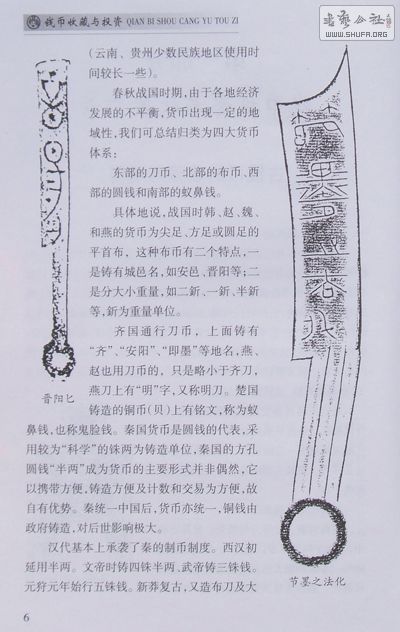 钱币收藏与投资 QIAN BI SHOU CANG YU TOU ZI
书艺公社
WWW.SHUFA.ORG
(云南、贵州少数民族地区使用时
间较长一些)。
春秋战国时期,由于各地经济
发展的不平衡,货币出现一定的地
域性,我们可总结归类为四大货币
体系:
东部的刀币、北部的布币、西
部的圆钱和南部的蚁鼻钱。
具体地说,战国时韩、赵、魏、
和燕的货币为尖足、方足或圆足的
平首布,这种布币有二个特点,一
是铸有城邑名,如安邑、晋阳等;二
是分大小重量,如二釿、一釿、半釿
等,釿为重量单位。
齐国通行刀币,上面铸有
“齐”、“安阳”、“即墨”等地名,燕、
赵也用刀币的,只是略小于齐刀,
燕刀上有“明”字,又称明刀。楚国
铸造的铜币(贝)上有铭文,称为蚁
鼻钱,也称鬼脸钱。秦国货币是圆钱的代表,采
用较为“科学”的铢两为铸造单位,秦国的方孔
圆钱“半两”成为货币的主要形式并非偶然,它
以携带方便,铸造方便及计数和交易为方便,故
自有优势。秦统一中国后,货币亦统一,铜钱由
政府铸造,对后世影响极大。
汉代基本上承袭了秦的制币制度。西汉初
延用半两。文帝时铸四铢半两、武帝铸三铢钱。
元狩元年始行五铢钱。新莽复古,又造布刀及大
晋阳匕
节墨之法化
6